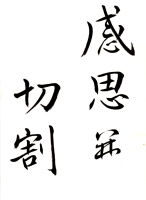 感思
切割